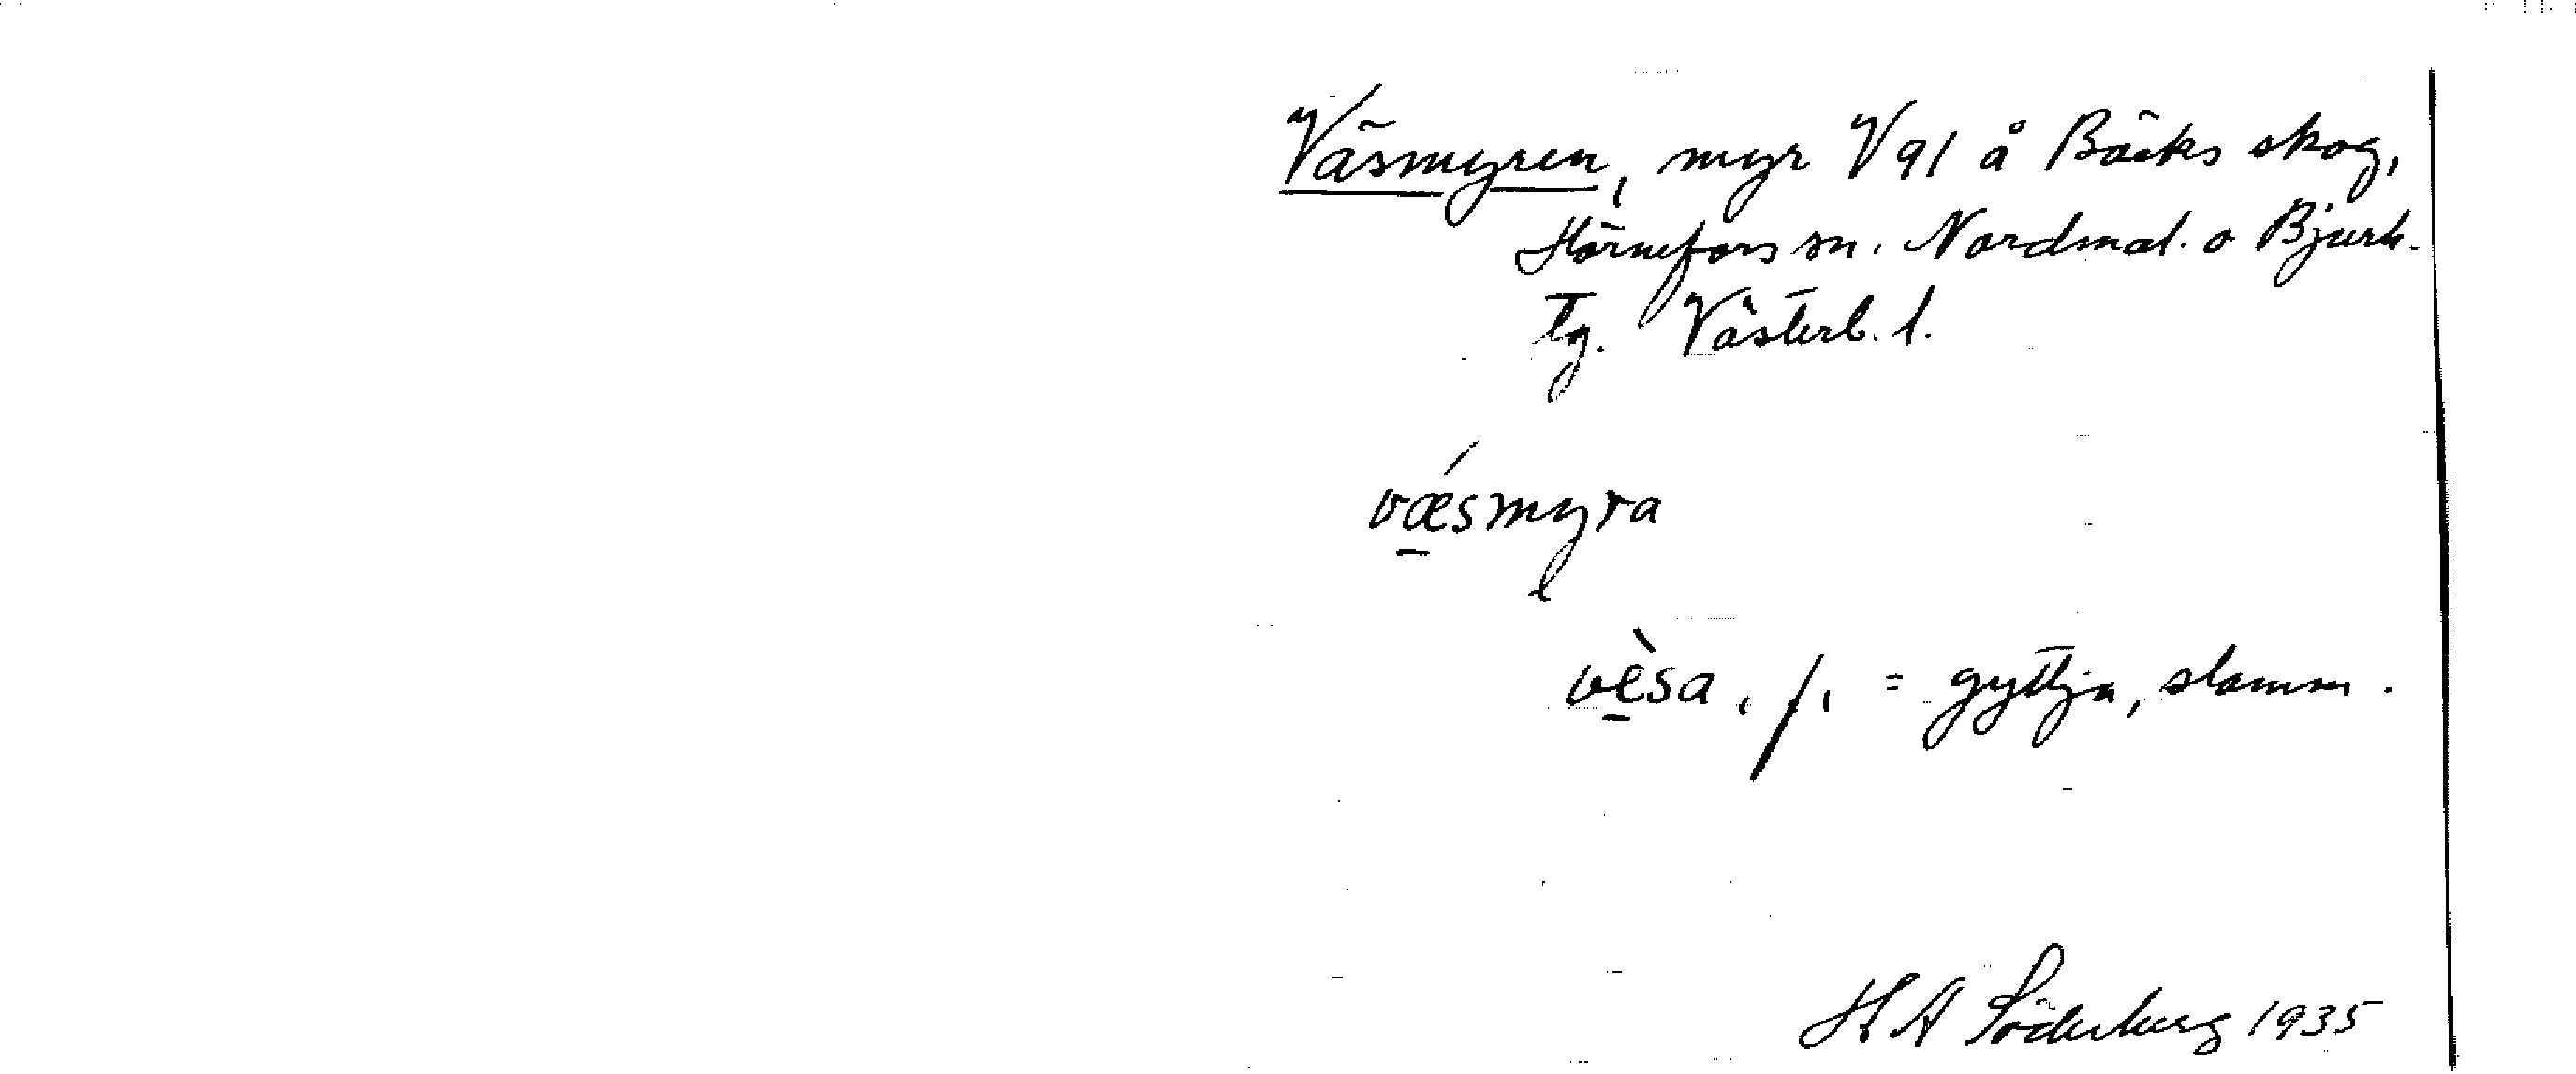 Väsmyren, myr V91 å Bäcks skog,
Hörnefors sn. Nordmal. o Bjurh.
tg. Västerb. l.
vǽ̱smyra
vè̱sa, f, = gyttja, slamm.
H A Söderberg 1935